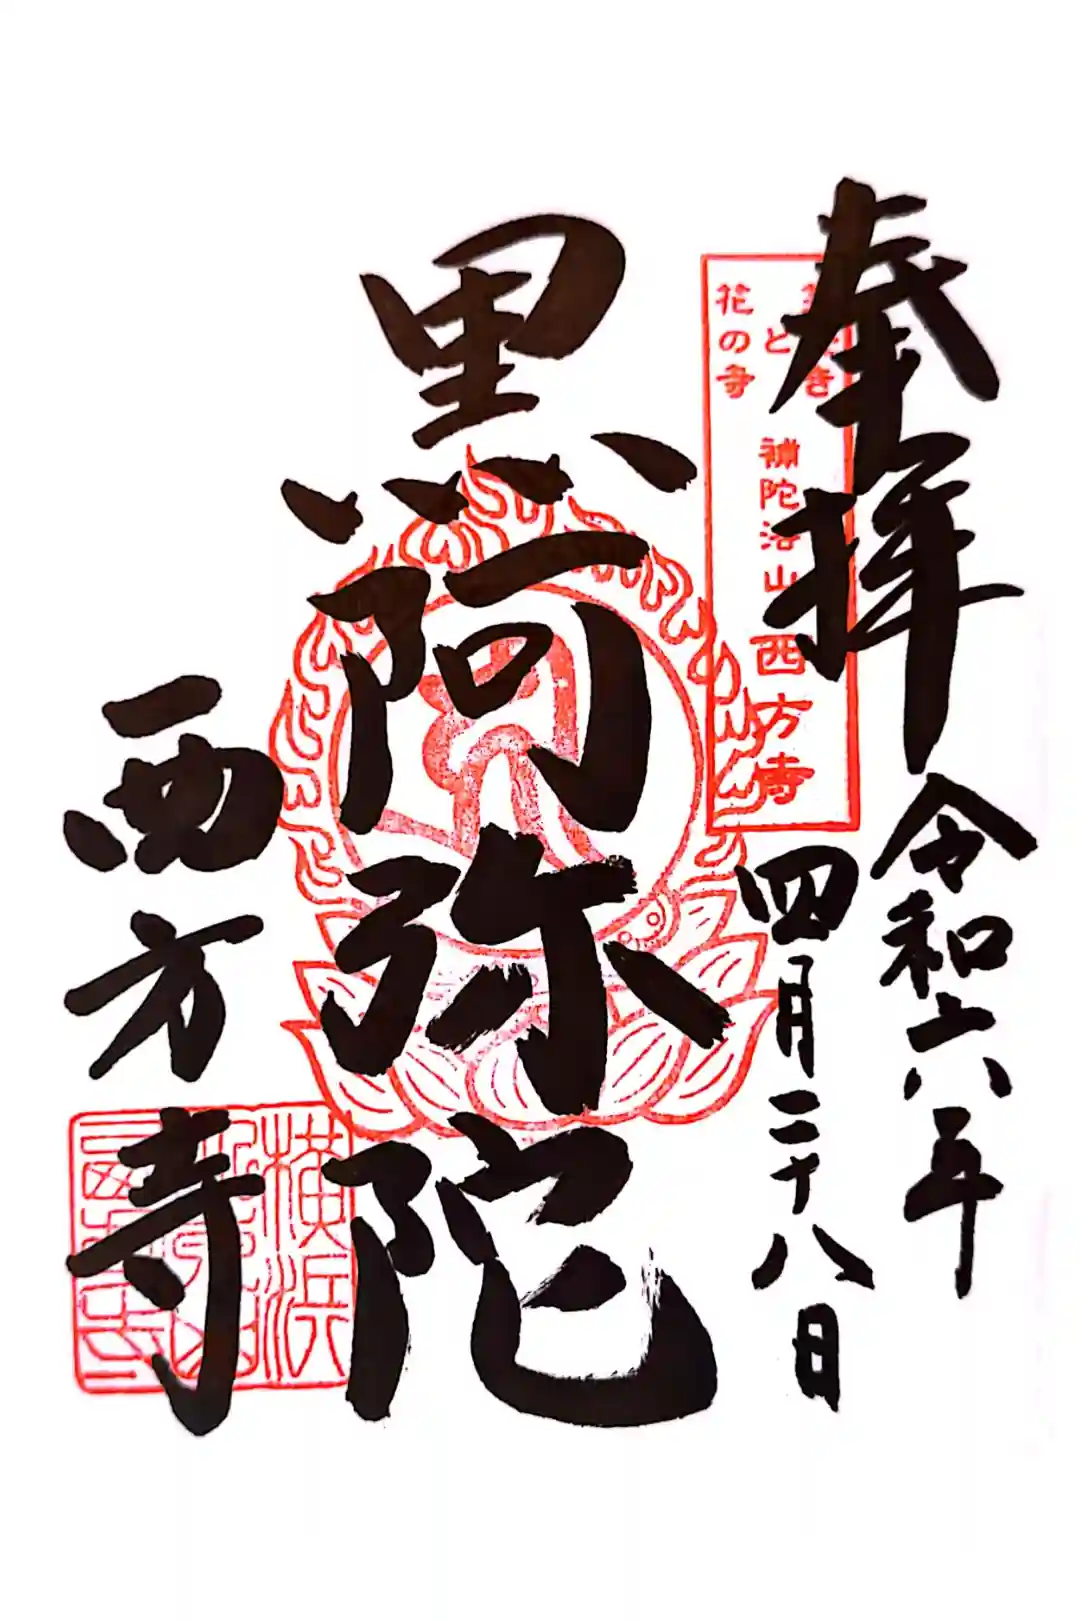 奉拝
令和六年
四月二十八日
と
花の寺
補陀洛山 西方寺
黒阿弥陀
西方寺
横浜